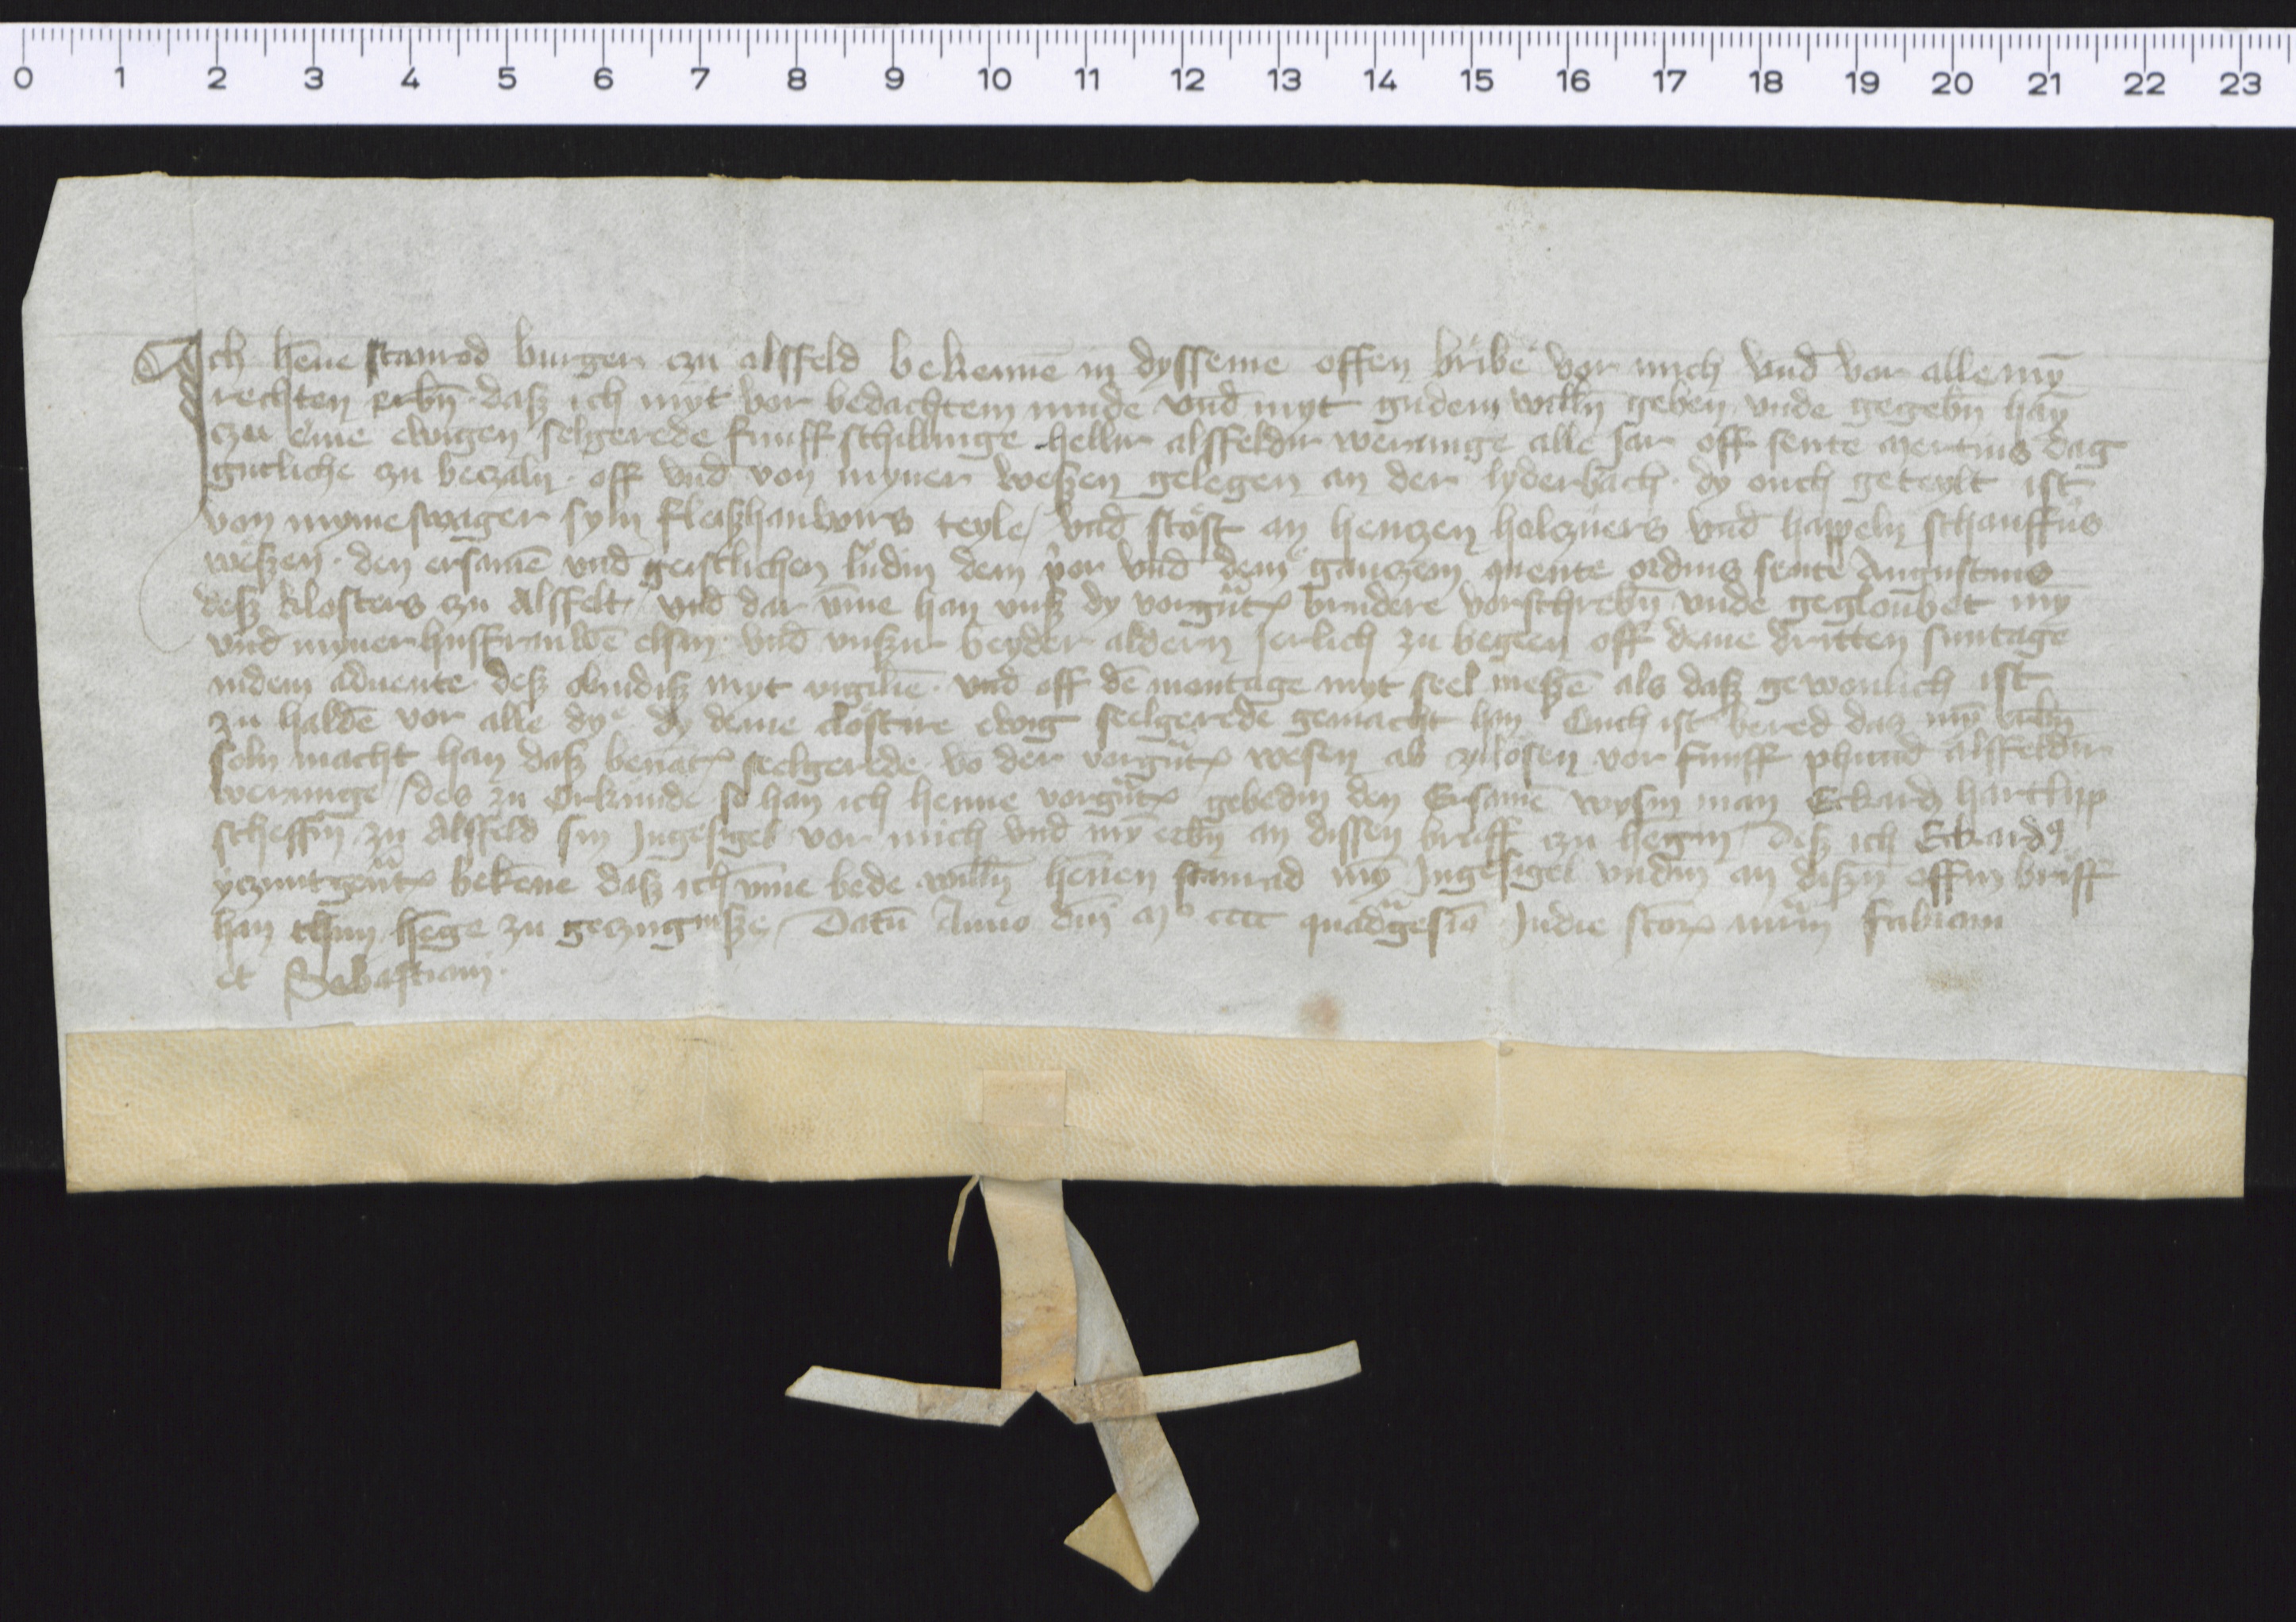 0 1 2 3 4 5 6 7 8 9 10 11 12 13 14 15 16 17 18 19 20 21 22 23
Ich hēne stamrod burger czu alsffeld bekenne in dysseme offen bribe vor mich vnd vor alle mȳ
rechten erbn̄ · daß ich myt vor bedachtem mude vnd myt gudem willn̄ geben vnde gegebn̄ han
czu eme ewigen selgerede funff schillinge hellir alsffeldir werunge alle Jar off sente mertins dag
gutliche zu beczaln · off vnd von myner weßen gelegen an der lyderbach · dy ouch geteylt ist
von myme swager sym fleißhauwirs teyle / vnd stost an henczen holczuers vnd happeln schauffūs
weßen · den ersamē vnd geistlichen ludin dem p̄or vnd dem ganczem quente ordinis sente Augustinus
deß klosters zu Alsffelt / vnd dar vm̄e han vnß dy vorgūt brudere vorschrebn̄ vnde gegloubet mȳ
vnd myner husfrauwē elsin vnd vnßir beyder aldern Jerlich zu begeen off deme dritten suntage
indem aduente deß obindiß myt vigiliē · vnd off dē montage myt seel meßē als daß gewonlich ist
zu haldē vor alle dye dy deme closture ewig seelgerede gemacht han Ouch ist bered daz mȳ erbn̄
soln macht han daß benāt seelgerede vō der vorgūt wesen ab zulosen vor funff phund alsffeldir
werunge / des zu Orkunde so han ich henne vorgūt gebedin den Ersamē wysin man Eckard hartlipp
scheffin zu Alsffeld sin Ingesigel vor mich vnd mȳ erbn̄ an dissen briff czu hegin / deß ich Eckardꝰ
yczuntgēūt bekēne daß ich vm̄e bede willn̄ hēnen stamrad mȳ Ingesigel vndin an dißin offin briff
han thun hēge zu geczugniße / Datū Anno dn̄i mͦ cccc quadᵃgesiō Indie sctorꝝ mr̄m fabiani
et Sebastiani ·